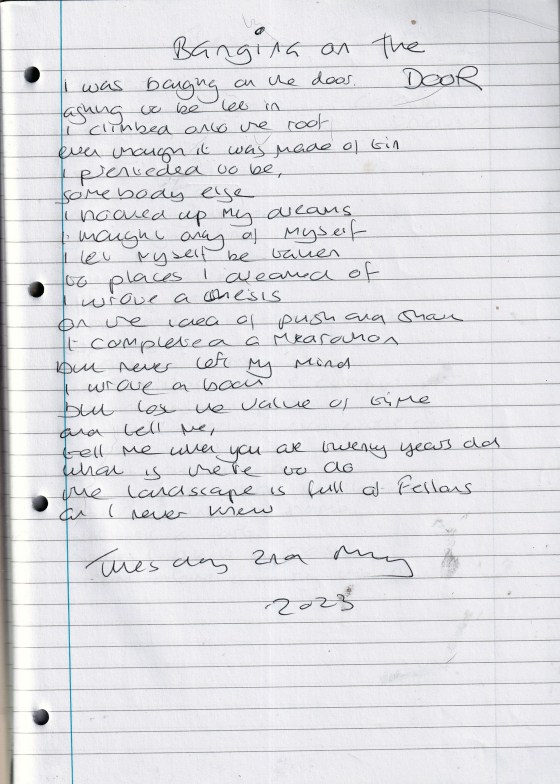 Banging on the
DOOR
I was banging on the door.
asking to be let in
I climbed onto the roof
even though it was made of tin
I pretended to be,
somebody else
I hoovered up my dreams
I thought only of myself
I let myself be taken
to places I dreamed of
I wrote a thesis
on the idea of push and shove
I completed a Marathon
but never left my mind
I wrote a book
but lost the value of time
and tell me,
tell me when you are twenty years old
what is there to do
the landscape is full of Fellows
I never knew
Tuesday 2nd May
2023